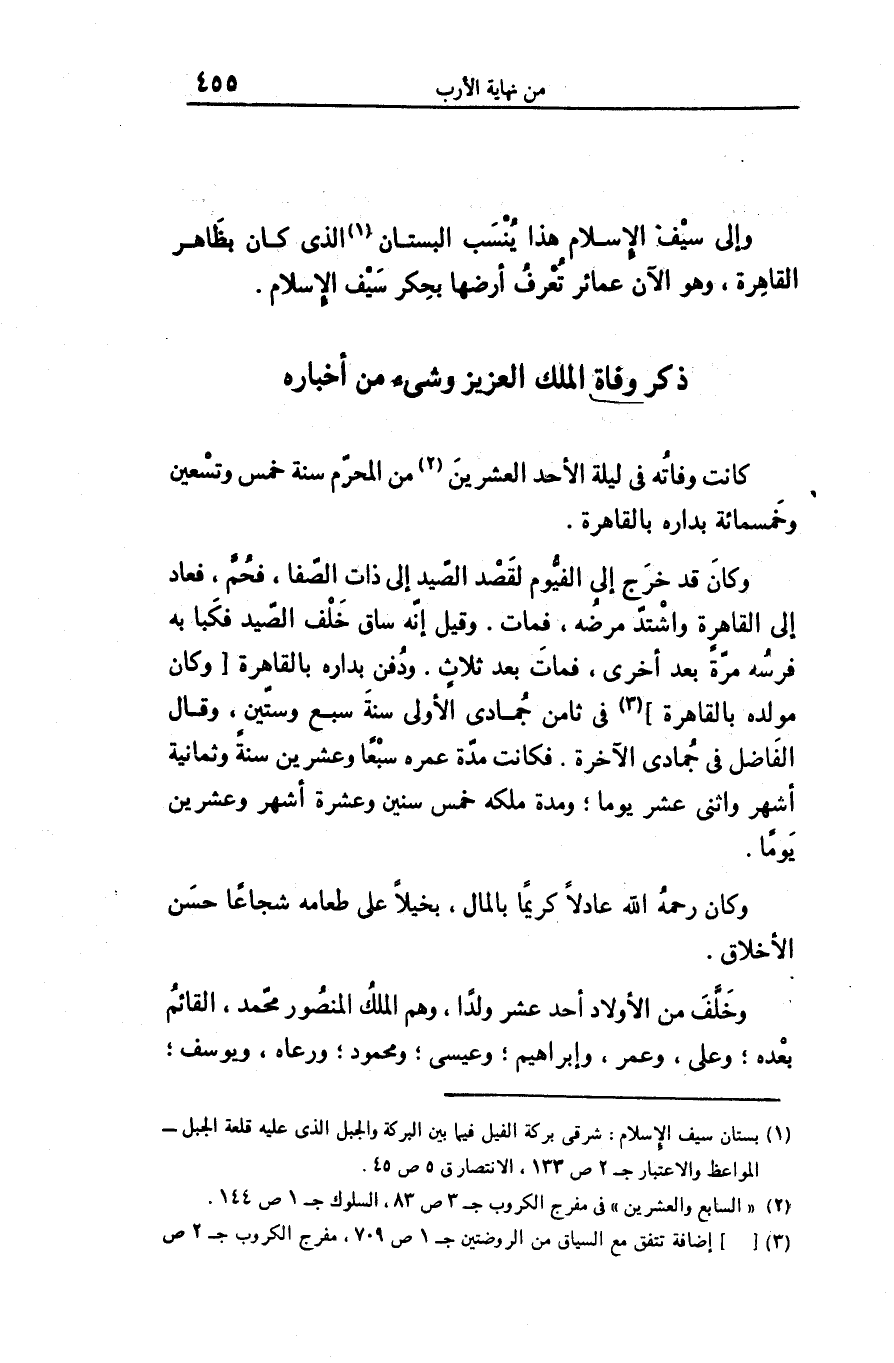 من نهاية الأرب ٤٥٥
وإلى سيْف الإسلام هذا يُنْسَب البستان (١) الذى كان بظَاهر
القاهِرة ، وهو الآن عمائر تُعْرفُ أرضها بحِكر سَيْف الإسلام .
ذكر وفاة الملك العزيز وشىء من أخباره
كانت وفاتُه فى ليلة الأحد العشرينَ (٢) من المحرّم سنة خمس وتسْعين
وخَمسمائة بداره بالقاهرة .
وكانَ قد خرَج إلى الفيُّوم لقَصْد الصّيد إلى ذات الصّفا ، فحُمَّ ، فعاد
إلى القاهرة واشْتدّ مرضُه ، فمات . وقيل إنّه ساق خَلْف الصّيد فكَبا به
فرسُه مرّةً بعد أخرى ، فماتَ بعد ثلاثٍ . ودُفن بداره بالقاهرة [ وكان
مولده بالقاهرة ](٣) فى ثامن جُمـادى الأولى سنةَ سبـع وستّين ، وقـال
الفَاضل فى جُمادى الآخرة . فكانت مدّة عمره سبْعًا وعشرين سنةً وثمانية
أشهر واثنى عشر يوما ؛ ومدة ملكه خمس سنين وعشرة أشهر وعشرين
يَومًا .
وكان رحمهُ الله عادلاً كريمًا بالمال ، بخيلاً على طعامه شجاعًا حسَن
الأخلاق .
وخَلَّفَ من الأولاد أحد عشر ولدًا ، وهم الملكُ المنصُور محّمد ، القائمُ
بعْده ؛ وعلى ، وعمر ، وإبراهيم ؛ وعيسى ؛ ومحمود ؛ ورعاه ، ويوسف ؛
(١) بستان سيف الإسلام : شرقى بركة الفيل فيما بين البركة والجبل الذى عليه قلعة الجبل ــ
المواعظ والاعتبار جـ ٢ ص ١٣٣ ، الانتصار ق ٥ ص ٤٥ .
(٢) « السابع والعشرين » فى مفرج الكروب جـ ٣ ص ٨٣ ، السلوك جـ ١ ص ١٤٤ .
(٣) [ ] إضافة تتفق مع السياق من الروضتين جـ ١ ص ٧٠٩ ، مفرج الكروب جـ ٢ ص